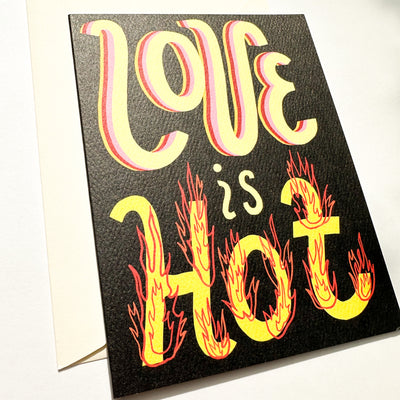 LOVE
is
Hot